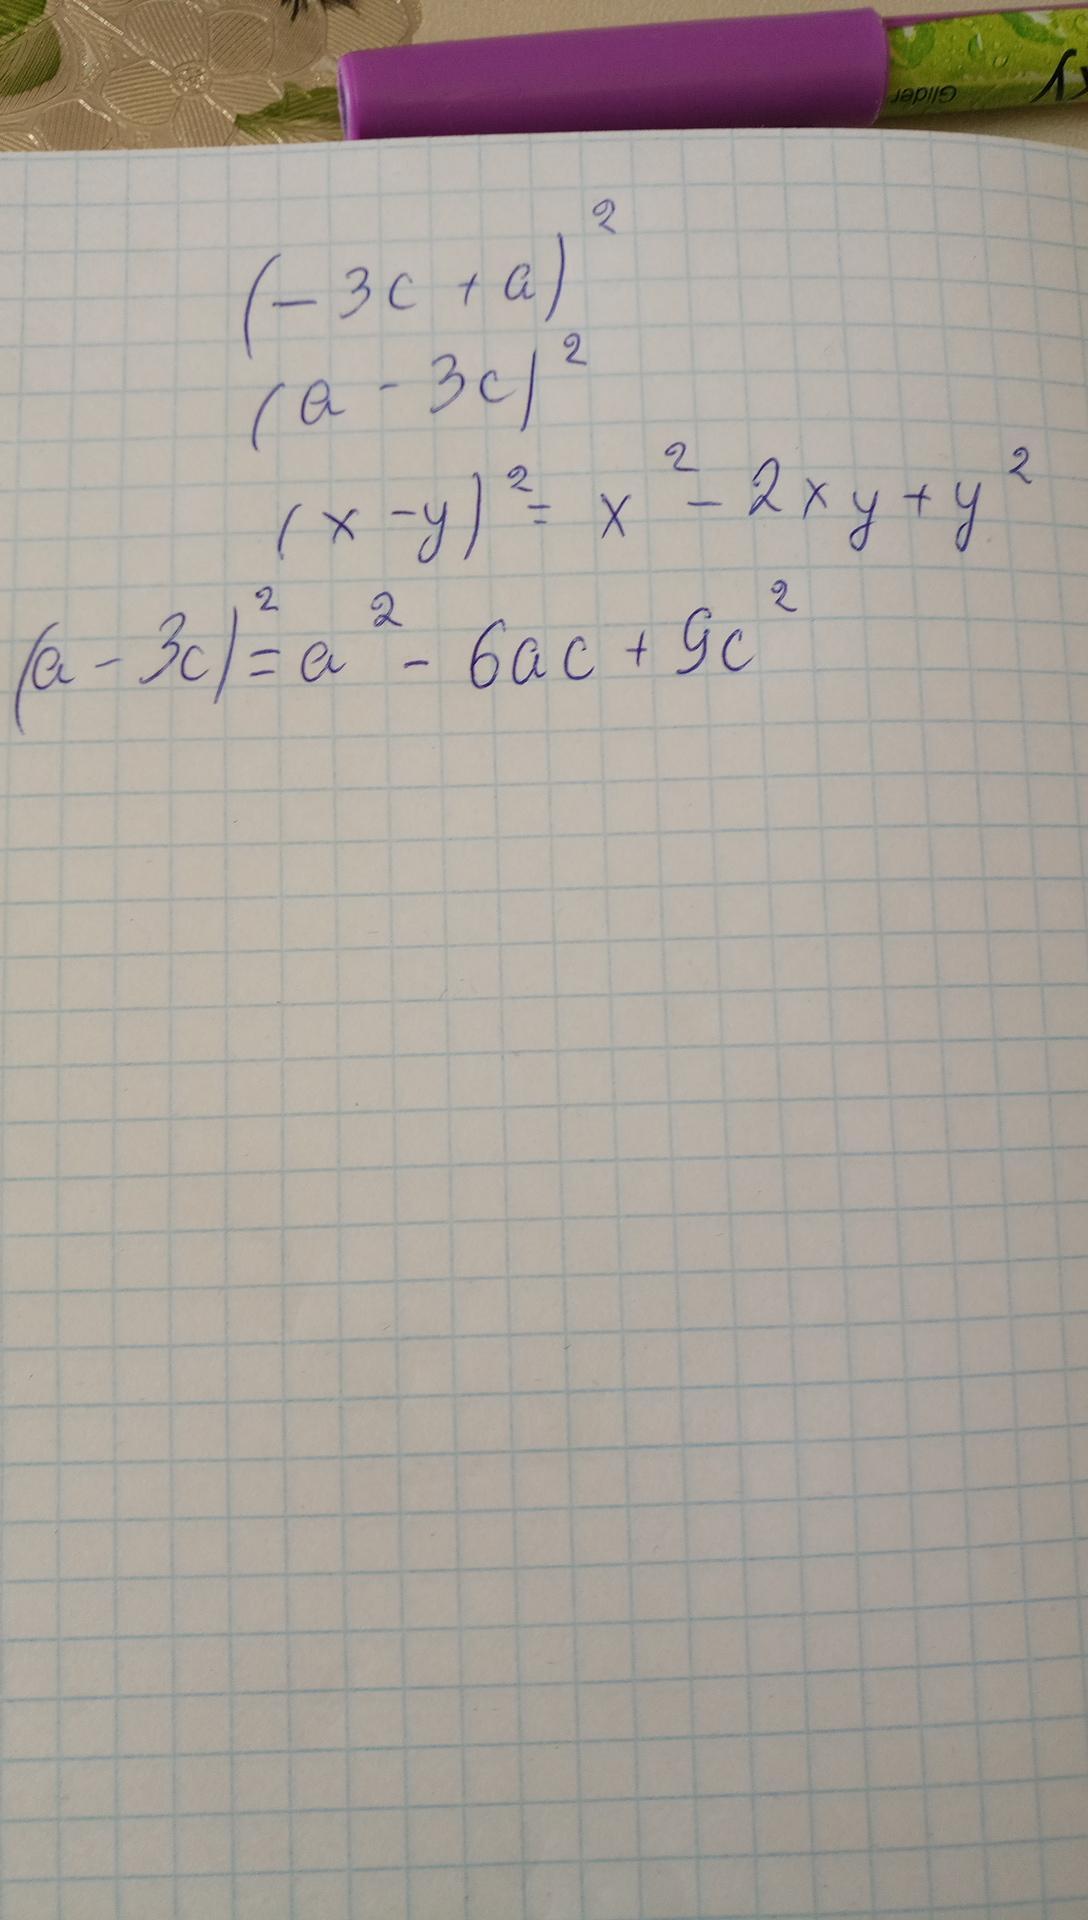 Glider
(- 3c + a)²
(a - 3c)²
(x - y)² = x² - 2xy + y²
(a - 3c)² = a² - 6ac + 9c²